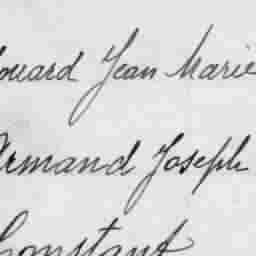 ouard Jean Marie
Armand Joseph
Constant